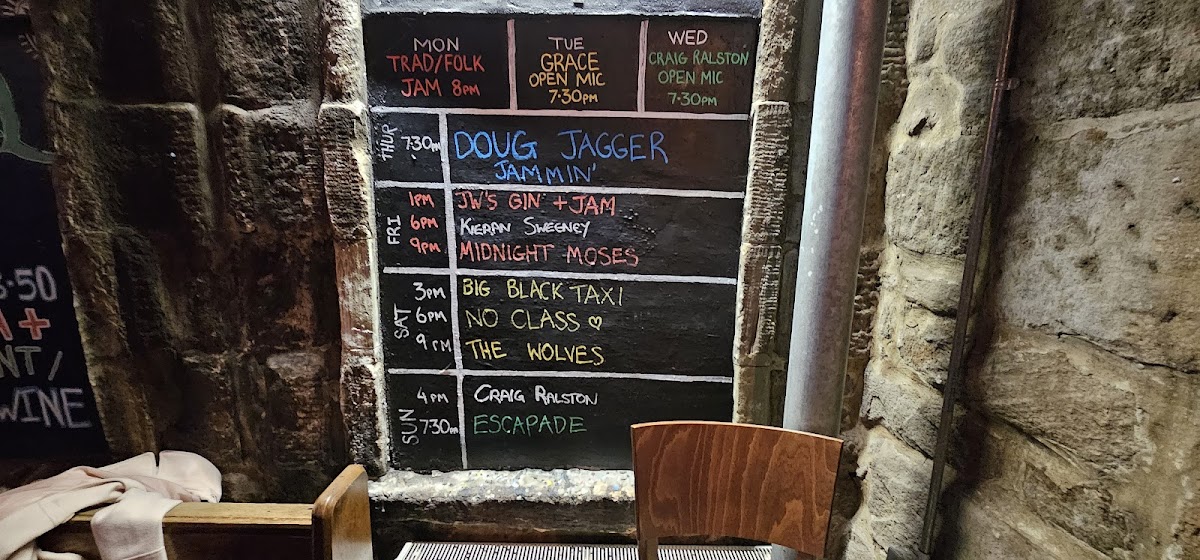 MON
TRAD/FOLK
JAM 8PM
TUE
GRACE
OPEN MIC
7·30PM
WED
CRAIG RALSTON
OPEN MIC
7·30PM
THUR 7:30M DOUG JAGGER
JAMMIN'
FRI
1PM JW'S GIN' + JAM
6PM KIERAN SWEENEY
9PM MIDNIGHT MOSES
SAT
3PM BIG BLACK TAXI
6PM NO CLASS ♡
9PM THE WOLVES
SUN
4PM CRAIG RALSTON
7:30PM ESCAPADE
·50
+
NT/
WINE